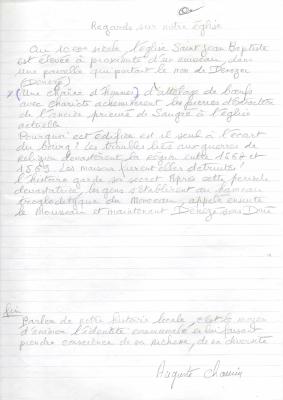 Regards sur notre église
Au 10ème siècle, l'église Saint Jean Baptiste
est élevée à proximité d'un ruisseau, dans
une parcelle qui portait le nom de Denezer
(Denezé)
(Une chaîne d'hommes) d'attelage de boeufs
avec chariots acheminèrent les pierres d'extraction
de l'ancien prieuré de Saugré à l'église
actuelle
Pourquoi cet édifice est il seul à l'écart
du bourg? les troubles liés aux guerres de
religion dévastèrent la région entre 1567 et
1569 les maisons furent elles détruites?
l'histoire garde son secret Après cette période
dévastatrice, les gens s'établirent au hameau
troglodytique du Monceau, appelé ensuite
le Mousseau et maintenant Denezé sous Doué
fin
Parler de notre histoire locale, c'est le moyen
d'animer l'identité communale en lui faisant
prendre conscience de sa richesse, de sa diversité
Auguste